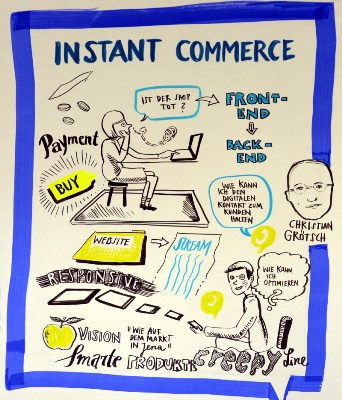 INSTANT COMMERCE
IST DER SHOP
TOT ?
FRONT-
END
BACK-
END
Payment
BUY
WIE KANN
ICH DEN
DIGITALEN
KONTAKT ZUM
KUNDEN
HALTEN
CHRISTIAN
GRÖTSCH
WEBSITE
STREAM
WIE KANN
ICH
OPTIMIEREN
?
RESPONSIVE
VISION
"WIE AUF
DEM MARKT
IN JENA"
Smarte PRODUKTE
creepy Line